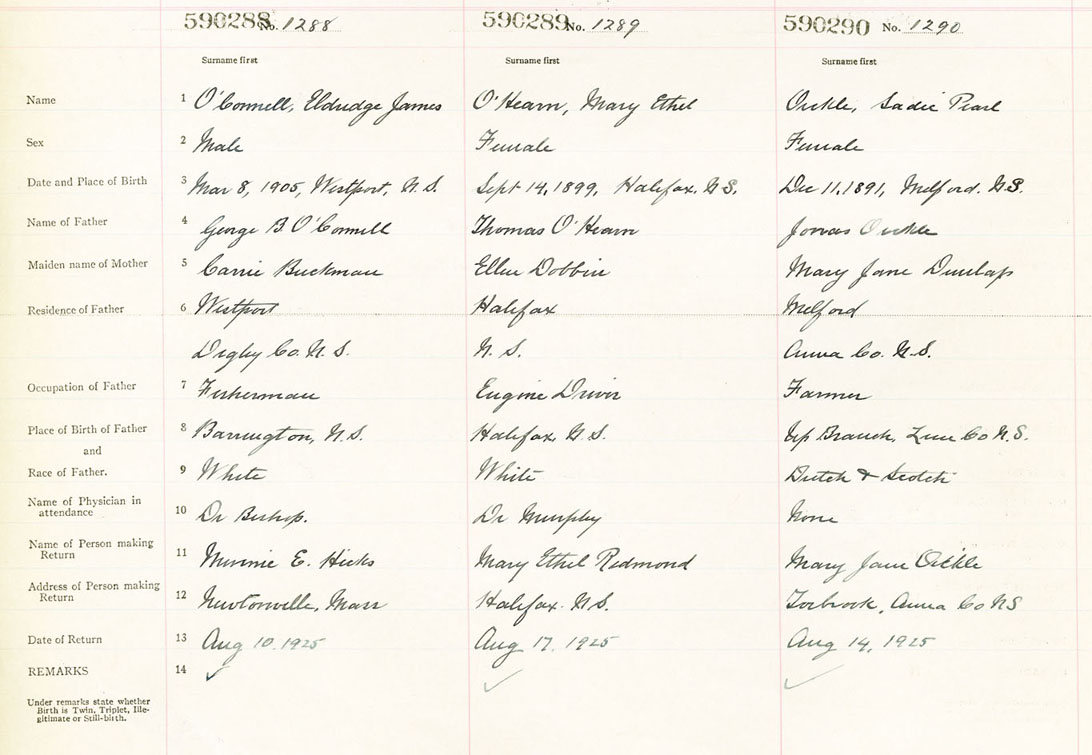 590288 No. 1288 590289 No. 1289 590290 No. 1290
Surname first Surname first Surname first
Name 1 O'Connell, Eldridge James O'Hearn, Mary Ethel Oickle, Sadie Pearl
Sex 2 Male Female Female
Date and Place of Birth 3 Mar 8, 1905, Westport, N.S. Sept 14, 1899, Halifax, N.S. Dec 11, 1891, Milford. N.S.
Name of Father 4 George B. O'Connell Thomas O'Hearn Jonas Oickle
Maiden name of Mother 5 Carrie Buckman Ellen Dobbin Mary Jane Dunlap
Residence of Father 6 Westport Halifax Milford
Digby Co. N.S. N.S. Anna Co. N.S.
Occupation of Father 7 Fisherman Engine Driver Farmer
Place of Birth of Father 8 Barrington, N.S. Halifax, N.S. Up Branch, Lun Co N.S.
and
Race of Father. 9 White White Dutch & Scotch
Name of Physician in
attendance 10 Dr Bishop. Dr Murphy None
Name of Person making
Return 11 Minnie E. Hicks Mary Ethel Redmond Mary Jane Oickle
Address of Person making
Return 12 Newtonville, Mass Halifax. N.S. Torbrook, Anna Co NS
Date of Return 13 Aug 10. 1925 Aug 17. 1925 Aug 14, 1925
REMARKS 14
Under remarks state whether
Birth is Twin, Triplet, Ille-
gitimate or Still-birth.